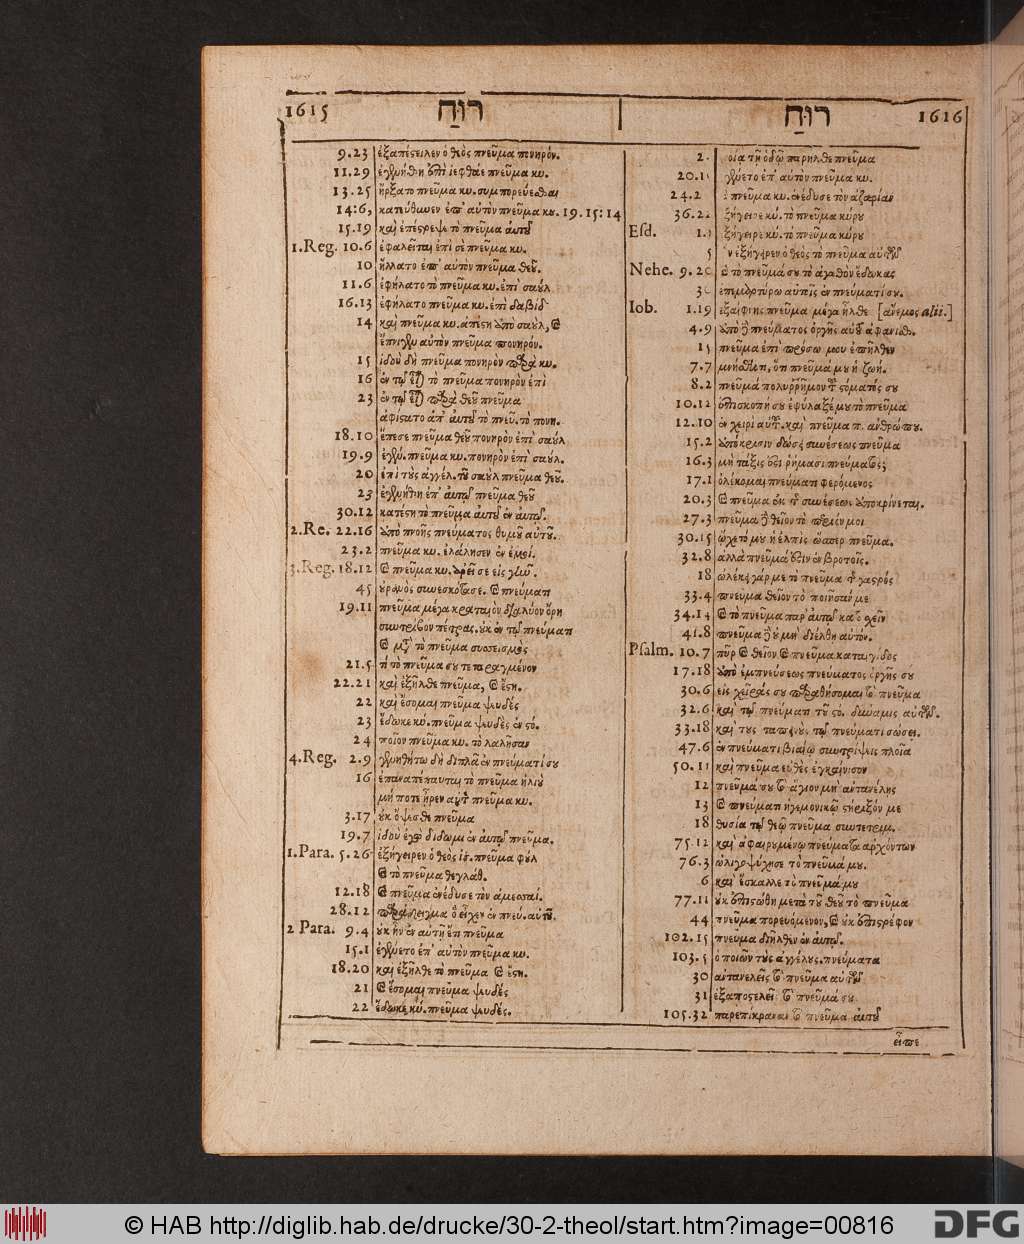 1615 רוּחַ
9.23 ἐξαπέστειλεν ὁ θεὸς πνεῦμα πονηρόν.
11.29 ἐγενήθη ἐπὶ ἰεφθάε πνεῦμα κυ.
13.25 ἤρξατο πνεῦμα κυ. συμπορεύεσθαι
14:6, κατεύθυνεν ἐπ' αὐτὸν πνεῦμα κυ. 19. 15:14
15.19 καὶ ἐπέστρεψε τὸ πνεῦμα αὐτοῦ
1.Reg. 10.6 ἐφαλεῖται ἐπὶ σὲ πνεῦμα κυ.
10 ἥλλατο ἐπ' αὐτὸν πνεῦμα θεοῦ.
11.6 ἐφήλατο τὸ πνεῦμα κυ. ἐπὶ σαούλ
16.13 ἐφήλατο πνεῦμα κυ. ἐπὶ δαβίδ
14 καὶ πνεῦμα κυ. ἀπέστη ὑπὸ σαούλ, καὶ
ἔπνιγεν αὐτὸν πνεῦμα πονηρόν.
15 ἰδοὺ δὴ πνεῦμα πονηρὸν παρὰ κυ.
16 ἐν τῷ εἶναι τὸ πνεῦμα πονηρὸν ἐπὶ
23 ἐν τῷ εἶναι παρὰ θεοῦ πνεῦμα
ἀφίστατο ἀπ' αὐτοῦ τὸ πνεῦ. τὸ πονη.
18.10 ἔπεσε πνεῦμα θεοῦ πονηρὸν ἐπὶ σαούλ
19.9 ἐγέν. πνεῦμα κυ. πονηρὸν ἐπὶ σαούλ.
20 ἐπὶ τοὺς ἀγγέλ. τοῦ σαοὺλ πνεῦμα θεοῦ.
23 ἐγενήθη ἐπ' αὐτῷ πνεῦμα θεοῦ
30.12 κατέστη τὸ πνεῦμα αὐτοῦ ἐν αὐτῷ.
2.Re. 22.16 ἀπὸ πνοῆς πνεύματος θυμοῦ αὐτοῦ.
23.2 πνεῦμα κυ. ἐλάλησεν ἐν ἐμοί.
3.Reg. 18.12 καὶ πνεῦμα κυ. ἀρεῖ σε εἰς γῆν.
45 οὐρανὸς συνεσκότασε. καὶ πνεύματι
19.11 πνεῦμα μέγα κραταιὸν διαλύον ὄρη
συντρίβον πέτρας. οὐκ ἐν τῷ πνεύματι
καὶ μετὰ τὸ πνεῦμα συσσεισμὸς
21.5 τί τὸ πνεῦμα σου τεταραγμένον
22.21 καὶ ἐξῆλθε πνεῦμα, καὶ ἔστη.
22 καὶ ἔσομαι πνεῦμα ψευδές
23 ἔδωκε κύ. πνεῦμα ψευδὲς ἐν στό.
24 ποῖον πνεῦμα κυ. τὸ λαλῆσαν
4.Reg. 2.9 γενηθήτω δὴ διπλᾶ ἐν πνεύματί σου
16 ἐπαναπέπαυται τὸ πνεῦμα ἡλιοῦ
μή ποτε ἦρεν αὐτὸν πνεῦμα κυ.
3.17 οὐκ ὄψεσθε πνεῦμα
19.7 ἰδοὺ ἐγὼ δίδωμι ἐν αὐτῷ πνεῦμα.
1.Para. 5.26 ἐξήγειρεν ὁ θεὸς ἰσ. πνεῦμα φούλ
καὶ τὸ πνεῦμα θεγλάθ.
12.18 καὶ πνεῦμα ἐνέδυσε τὸν ἀμεσσαί.
28.12 παράδειγμα ὃ εἶχεν ἐν πνεύ. αὐτοῦ.
2 Para. 9.4 οὐκ ἦν ἐν αὐτῇ ἔτι πνεῦμα
15.1 ἐγένετο ἐπ' αὐτὸν πνεῦμα κυ.
18.20 καὶ ἐξῆλθε τὸ πνεῦμα καὶ ἔστη.
21 καὶ ἔσομαι πνεῦμα ψευδές
22 ἔδωκε κύ. πνεῦμα ψευδές.
רוּחַ 1616
παρῆλθε πνεῦμα
20.1 γένετο ἐπ' αὐτὸν πνεῦμα κυ.
24.2 πνεῦμα κυ. ἐνέδυσε τὸν ἀζαρίαν
36.2 ξήγειρε κύ. τὸ πνεῦμα κύρου
Esd. 1. ξήγειρε κύ. τὸ πνεῦμα κύρου
5 ν ἐξήγειρεν ὁ θεὸς τὸ πνεῦμα αὐτῶν
Nehe. 9.20 τὸ πνεῦμά σου τὸ ἀγαθὸν ἔδωκας
30 ἐπεμαρτύρω αὐτοῖς ἐν πνεύματί σου.
Iob. 1.19 ἐξαίφνης πνεῦμα μέγα ἦλθε [ἄνεμος alii.]
4.9 ἀπὸ πνεύματος ὀργῆς αὐτοῦ ἀφανισθ.
15 πνεῦμα ἐπὶ πρόσω μου ἐπῆλθεν
7.7 μνήσθητι, ὅτι πνεῦμα μου ἡ ζωή.
8.2 πνεῦμα πολυρρῆμον τοῦ στόματός σου
10.12 ἐπισκοπή σου ἐφύλαξέ μου τὸ πνεῦμα
12.10 ἐν χειρὶ αὐτοῦ. καὶ πνεῦμα π. ἀνθρώπου.
15.2 ἀπόκρισιν δώσει συνέσεως πνεῦμα
16.3 μὴ τάξις ἐστὶ ῥήμασι πνεύματος;
17.1 ὀλέκομαι πνεύματι φερόμενος
20.3 καὶ πνεῦμα ἐκ τῆς συνέσεως ἀποκρίνεται.
27.3 πνεῦμα θεῖον τὸ περιόν μοι
30.15 ᾤχετό μου ἡ ἐλπὶς ὥσπερ πνεῦμα.
32.8 ἀλλὰ πνεῦμά ἐστιν ἐν βροτοῖς.
18 ὠλέκει γάρ με τὸ πνεῦμα τῆς γαστρός
33.4 πνεῦμα θεῖον τὸ ποιῆσάν με
34.14 καὶ τὸ πνεῦμα παρ' αὐτῷ κατέχειν
41.8 πνεῦμα οὐ μὴ διέλθῃ αὐτόν.
Psalm. 10.7 πῦρ καὶ θεῖον καὶ πνεῦμα καταιγίδος
17.18 ἀπὸ ἐμπνεύσεως πνεύματος ὀργῆς σου
30.6 εἰς χεῖράς σου παραθήσομαι τὸ πνεῦμα
32.6 καὶ τῷ πνεύματι τοῦ στό. δύναμις αὐτῶν.
33.18 καὶ τοὺς ταπεινοὺς τῷ πνεύματι σώσει.
47.6 ἐν πνεύματι βιαίῳ συντρίψεις πλοῖα
50.11 καὶ πνεῦμα εὐθὲς ἐγκαίνισον
12 πνεῦμά σου τὸ ἅγιον μὴ ἀντανέλῃς
13 καὶ πνεύματι ἡγεμονικῷ στήριξόν με
18 θυσία τῷ θεῷ πνεῦμα συντετριμ.
75.12 καὶ ἀφαιρουμένῳ πνεύματα ἀρχόντων
76.3 ὠλιγοψύχησε τὸ πνεῦμά μου.
6 καὶ ἔσκαλλε τὸ πνεῦμα μου
77.11 οὐκ ἐπιστώθη μετὰ τοῦ θεοῦ τὸ πνεῦμα
44 πνεῦμα πορευόμενον, καὶ οὐκ ἐπιστρέφον
102.15 πνεῦμα διῆλθεν ἐν αὐτῷ.
103.5 ὁ ποιῶν τοὺς ἀγγέλους πνεύματα
30 ἀντανελεῖς τὸ πνεῦμα αὐτῶν
31 ἐξαποστελεῖς τὸ πνεῦμά σου
105.32 παρεπίκραναν τὸ πνεῦμα αὐτοῦ
εἶπε
© HAB http://diglib.hab.de/drucke/30-2-theol/start.htm?image=00816
DFG